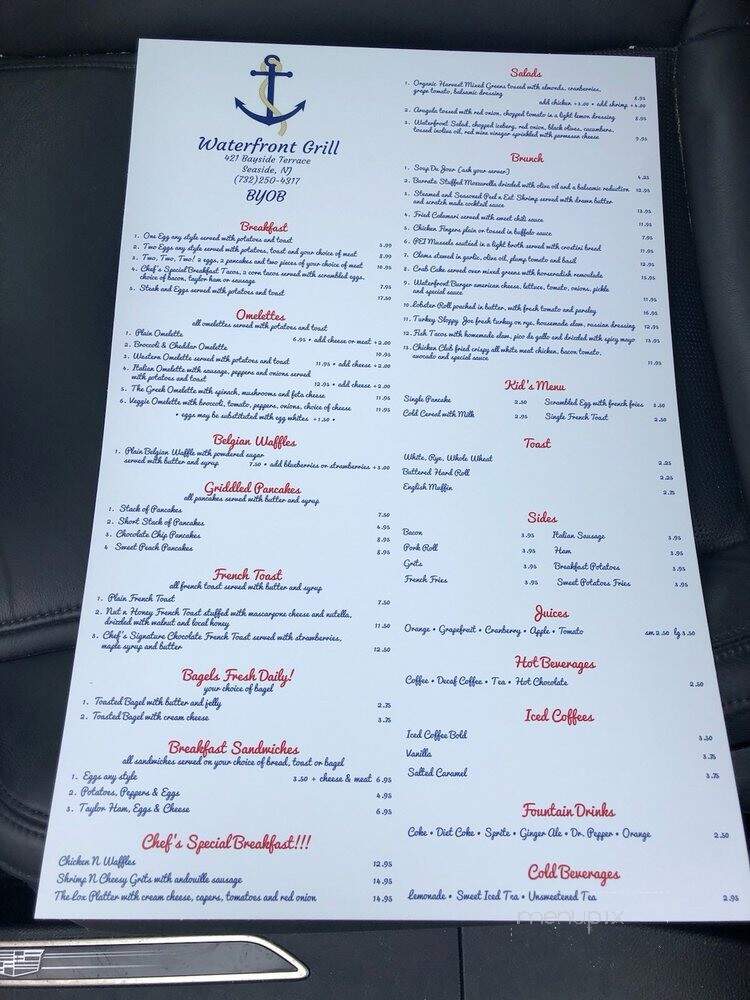 Waterfront Grill
421 Bayside Terrace
Seaside, NJ
(732)250-4317
BYOB
Breakfast
1. One Egg any style served with potatoes and toast 5.99
2. Two Eggs any style served with potatoes, toast and your choice of meat 8.99
3. Two, Two, Two! 2 eggs, 2 pancakes and two pieces of your choice of meat 10.95
4. Chef's Special Breakfast Tacos, 2 corn tacos served with scrambled eggs,
choice of bacon, taylor ham or sausage 7.95
5. Steak and Eggs served with potatoes and toast 17.50
Omelettes
all omelettes served with potatoes and toast
1. Plain Omelette 6.95 • add cheese or meat +2.00
2. Broccoli & Cheddar Omelette 10.95
3. Western Omelette served with potatoes and toast 11.95 • add cheese +2.00
4. Italian Omelette with sausage, peppers and onions served
with potatoes and toast 12.95 • add cheese +2.00
5. The Greek Omelette with spinach, mushrooms and feta cheese 11.95
6. Veggie Omelette with broccoli, tomato, peppers, onions, choice of cheese 11.95
• eggs may be substituted with egg whites +1.50 •
Belgian Waffles
1. Plain Belgian Waffle with powdered sugar
served with butter and syrup 7.50 • add blueberries or strawberries +3.00
Griddled Pancakes
all pancakes served with butter and syrup
1. Stack of Pancakes 7.50
2. Short Stack of Pancakes 4.95
3. Chocolate Chip Pancakes 8.95
4 Sweet Peach Pancakes 8.95
French Toast
all french toast served with butter and syrup
1. Plain French Toast 7.50
2. Nut n Honey French Toast stuffed with mascarpone cheese and nutella,
drizzled with walnut and local honey 11.50
3. Chef's Signature Chocolate French Toast served with strawberries,
maple syrup and butter 12.50
Bagels Fresh Daily!
your choice of bagel
1. Toasted Bagel with butter and jelly 2.75
2. Toasted Bagel with cream cheese 3.75
Breakfast Sandwiches
all sandwiches served on your choice of bread, toast or bagel
1. Eggs any style 3.50 + cheese & meat 6.95
2. Potatoes, Peppers & Eggs 4.95
3. Taylor Ham, Eggs & Cheese 6.95
Chef's Special Breakfast!!!
Chicken N Waffles 12.95
Shrimp N Cheesy Grits with andouille sausage 14.95
The Lox Platter with cream cheese, capers, tomatoes and red onion 14.95
Salads
1. Organic Harvest Mixed Greens tossed with almonds, cranberries,
grape tomato, balsamic dressing 8.95
add chicken +3.00 • add shrimp +4.00
2. Arugula tossed with red onion, chopped tomato in a light lemon dressing 8.95
3. Waterfront Salad, chopped iceberg, red onion, black olives, cucumbers,
tossed in olive oil, red wine vinegar sprinkled with parmesan cheese 9.95
Brunch
1. Soup De Jour (ask your server) 4.25
2. Burrata Stuffed Mozzarella drizzled with olive oil and a balsamic reduction 12.95
3. Steamed and Seasoned Peel n Eat Shrimp served with drawn butter
and scratch made cocktail sauce 13.95
4. Fried Calamari served with sweet chili sauce 11.95
5. Chicken Fingers plain or tossed in buffalo sauce 7.95
6. PEI Mussels sautéed in a light broth served with crostini bread 11.95
7. Clams stewed in garlic, olive oil, plump tomato and basil 12.95
8. Crab Cake served over mixed greens with horseradish remoulade 15.95
9. Waterfront Burger american cheese, lettuce, tomato, onions, pickle
and special sauce 11.95
10. Lobster Roll poached in butter, with fresh tomato and parsley 16.95
11. Turkey Sloppy Joe fresh turkey on rye, housemade slaw, russian dressing 12.95
12. Fish Tacos with homemade slaw, pico de gallo and drizzled with spicy mayo 13.95
13. Chicken Club fried crispy all white meat chicken, bacon, tomato,
avocado and special sauce 11.95
Kid's Menu
Single Pancake 2.50 Scrambled Egg with french fries 3.50
Cold Cereal with Milk 2.95 Single French Toast 2.50
Toast
White, Rye, Whole Wheat 2.25
Buttered Hard Roll 2.25
English Muffin 2.75
Sides
Bacon 3.95 Italian Sausage 3.95
Pork Roll 3.95 Ham 3.95
Grits 3.95 Breakfast Potatoes 3.95
French Fries 3.95 Sweet Potatoes Fries 3.95
Juices
Orange • Grapefruit • Cranberry • Apple • Tomato sm 2.50 lg 3.50
Hot Beverages
Coffee • Decaf Coffee • Tea • Hot Chocolate 2.50
Iced Coffees
Iced Coffee Bold 3.50
Vanilla 3.75
Salted Caramel 3.75
Fountain Drinks
Coke • Diet Coke • Sprite • Ginger Ale • Dr. Pepper • Orange 2.50
Cold Beverages
Lemonade • Sweet Iced Tea • Unsweetened Tea 2.95
menupix